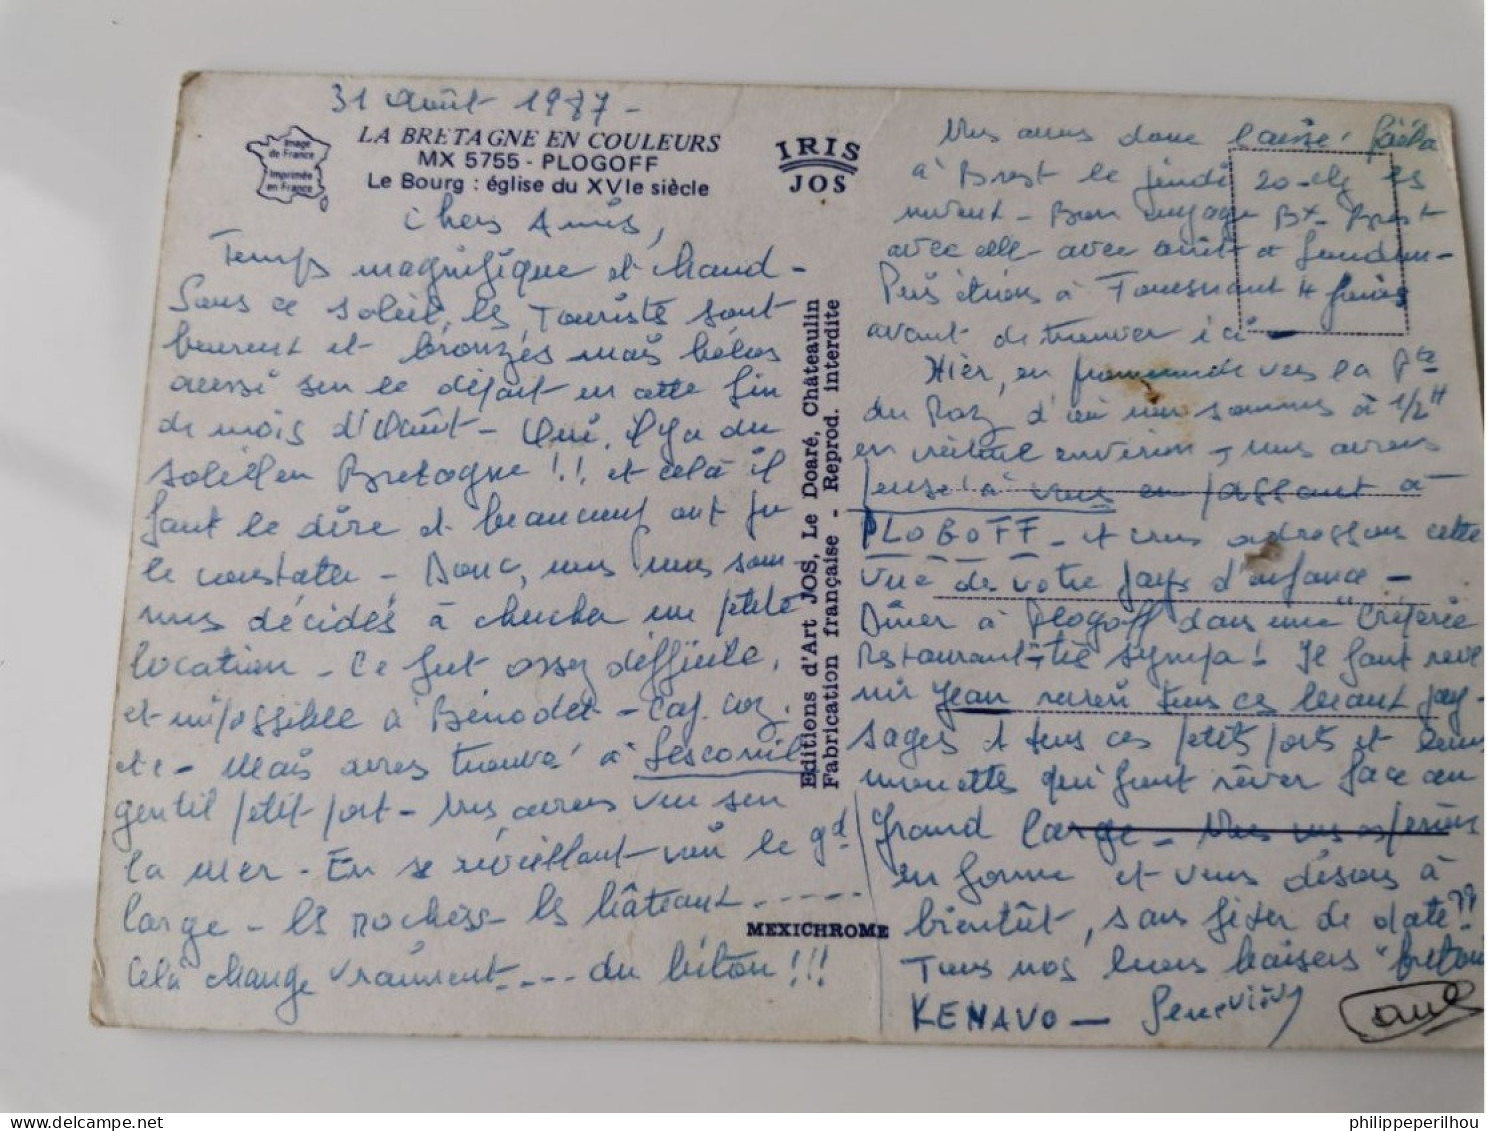 31 Août 1987 -
Image
de France
Imprimée
en France
LA BRETAGNE EN COULEURS
MX 5755 - PLOGOFF
Le Bourg : église du XVIe siècle
IRIS
JOS
Chers Amis,
Temps magnifique et chaud -
Sous ce soleil, les Touristes sont
heureux et bronzés mais hélas
aussi sur le départ en cette fin
de mois d'Août - Oui, il y a du
soleil en Bretagne !!! et celà il
faut le dire et beaucoup ont pu
le constater - Donc, nous nous som
mes décidés à chercher une petite
location - Ce fut assez difficile,
et impossible à Bénodet -
etc - Mais avons trouvé à Lesconil
gentil petit port - Nous avons vue sur
la mer - En se réveillant voir le gd
large - les rochers - les bâteaux -----
Celà change vraiment ---- du béton !!!
Editions d'Art JOS, Le Doaré, Châteaulin
Fabrication française - Reprod. interdite
MEXICHROME
Nous avons donc laissé
à Brest le jeudi 20 - elg les
suivent - Bon voyage Bx - Brest
avec elle - avec arrêt à
Puis étions à Fouesnant 4 jours
avant de trouver ici -
Hier, en promenade vers la Pte
du Raz, d'où nous sommes à 1/2 H
en voiture environ, nous avons
pensé à vous en passant à
PLOGOFF - et vous adressons cette
vue de votre pays d'enfance -
Dîner à Plogoff dans une "Crêperie
Restaurant - très sympa ! Il faut reve
nir Jean revoir tous ces beaux pay-
sages et tous ces petits ports et leurs
mouettes qui font rêver face au
grand large - Nous vous espérons
en forme et vous disons à
bientôt, sans fixer de date ??
Tous nos bons baisers "bretons
KENAVO - Geneviève